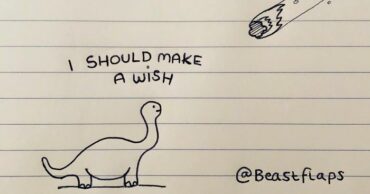 I SHOULD MAKE
A WISH
@Beastflaps